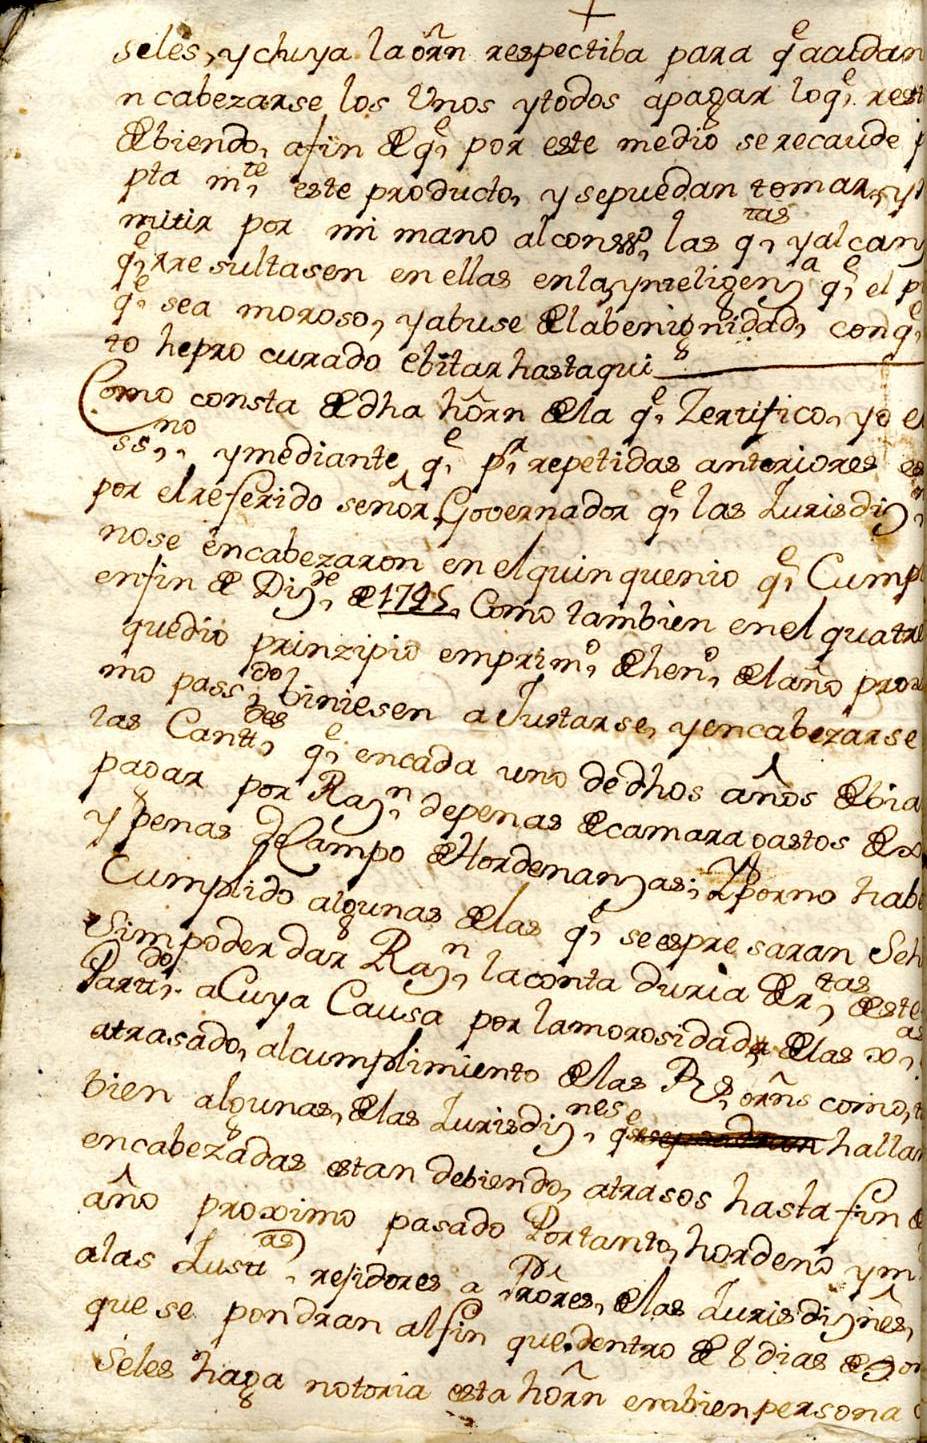 seles, y chuya la orñ respectiba para qe acudan
ncabezarse los Unos y todos apagar lo qe rest
debiendo, afin de qe por este medio se recaude
pta mte este producto, y sepuedan tomar, y
mitir por mi mano al conssºº, las qtas y alcanz
qe rresultasen en ellas en la ynteligenza qe el p
qe sea moroso, y abuse de la benignidad, con qe
to he procurado ebitar hasta qui
Como consta de dha horñ de la qe Zertifico, yo el
ssno, y mediante qe pr repetidas anteriores
por el referido señor Governador qe las Jurisdizn
no se encabezaron en el quinquenio qe Cumpl
en fin de Dizre de 1745, Como tambien en el quatre
que dio prinzipio em primº de henº del año prox
mo passdo biniesen a Justarse, y encabezarse
las Cantides qe en cada uno de dhos años debia
pagar por Razn de penas de camara gastos de
y penas de Campo de Hordenanzas; Y por no hab
Cumplido algunas de las qe se espresaran Seh
Sim poder dar Razn la contaduria de rtas de este
Partido, a Cuya Causa por la morosidad de las
atrasado, al cumplimiento de las Rs orñs como,
bien algunas, de las Jurisdiznes qe hallan
encabezadas estan debiendo, atrasos hasta fin de
año proximo pasado Por tanto, hordeno y m
a las Justias, rejidores a de las Jurisdizines,
que se pondran al fin que dentro de 8 dias de
Seles haga notoria esta horñ embien persona